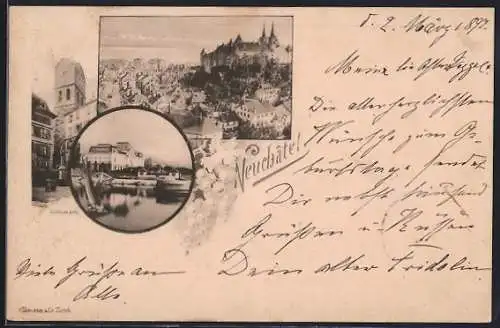 d. 2. März 1897.
Meine liebe
Die allerherzlichsten
Wünsche zum Ge-
burtstage sendet
Dir nebst tausend
Grüßen u. Küssen
Dein alter Fridolin
Neuchâtel
Viele Grüße an
Alle.